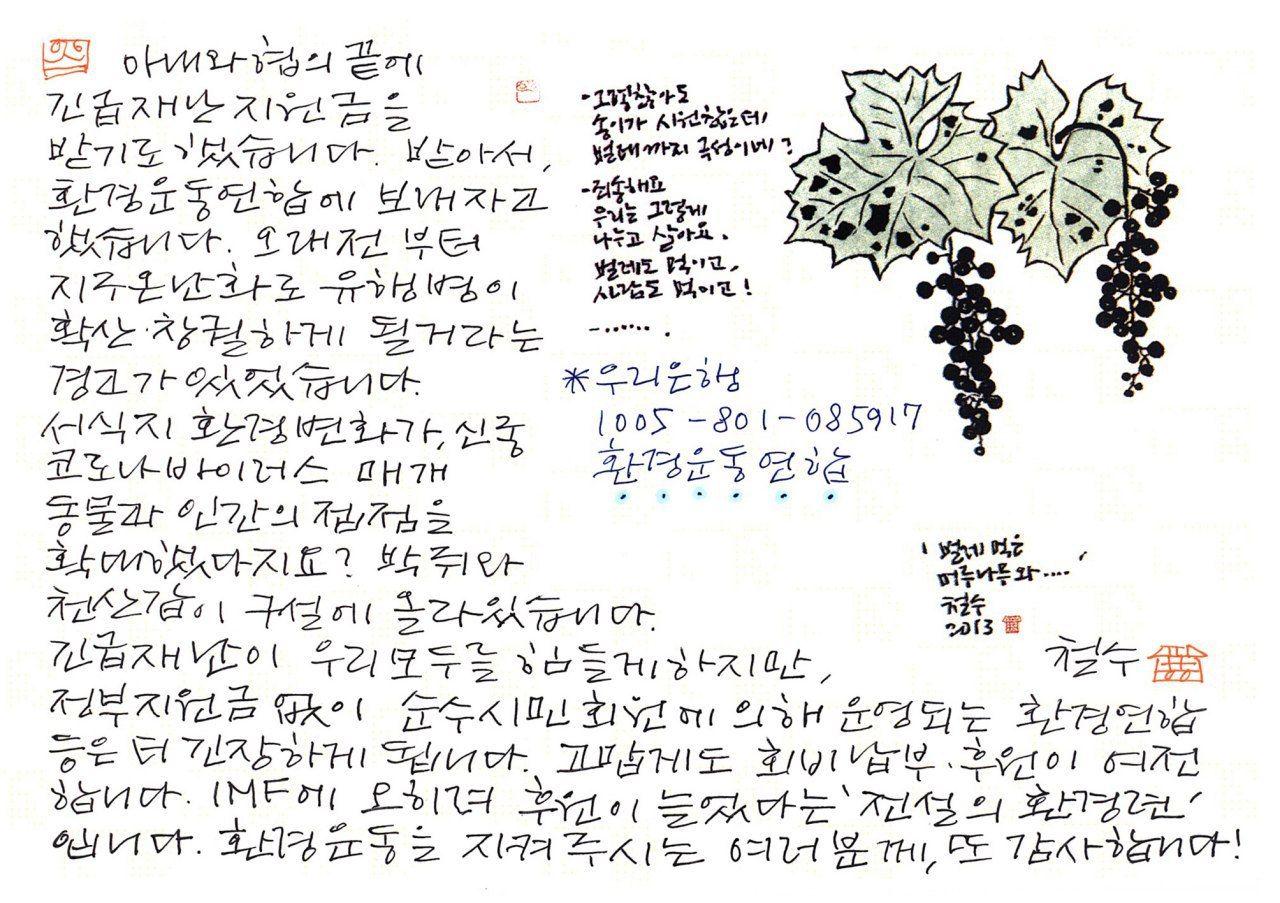 아내와 협의 끝에
긴급재난지원금을
받기로 했습니다. 받아서,
환경운동연합에 보내자고
했습니다. 오래전 부터
지구온난화로 유행병이
확산·창궐하게 될거라는
경고가 있었습니다.
서식지 환경변화가, 신종
코로나바이러스 매개
동물과 인간의 접점을
확대했다지요? 박쥐와
천산갑이 구설에 올라있습니다.
긴급재난이 우리모두를 힘들게하지만,
정부지원금 없이 순수시민회원에 의해 운영되는 환경연합
등은 더 긴장하게 됩니다. 고맙게도 회비납부·후원이 여전
합니다. IMF에 오히려 후원이 늘었다는 '전설의 환경련'
입니다. 환경운동을 지켜주시는 여러분께, 또 감사합니다!
송이가 시원찮은데
벌레까지 극성이네?
- 죄송해요
우리는 그렇게
나누고 살아요.
벌레도 먹이고,
사람도 먹이고!
-······.
*우리은행
1005-801-085917
환경운동연합
'벌레 먹은
머루나무와····'
철수
2013
철수